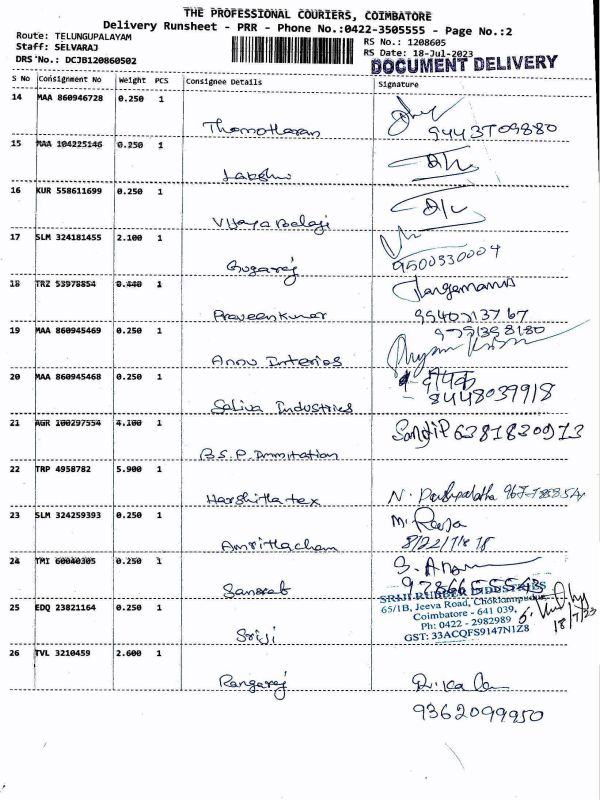 THE PROFESSIONAL COURIERS, COIMBATORE
Delivery Runsheet - PRR - Phone No.:0422-3505555 - Page No.:2
Route: TELUNGUPALAYAM
Staff: SELVARAJ
DRS No.: DCJB120860502
RS No.: 1208605
RS Date: 18-Jul-2023
DOCUMENT DELIVERY
S No Consignment No Weight PCS Consignee Details Signature
14 MAA 860946728 0.250 1
Thamotharan
15 MAA 104225146 0.250 1
Lakshmi
16 KUR 558611699 0.250 1
Vijaya Balaji
17 SLM 324181455 2.100 1
Gugaraj 9500330004
18 TRZ 53978854 0.440 1
Praveenkumar
19 MAA 860945469 0.250 1
Annu Interios
20 MAA 860945468 0.250 1
Saliva Industries 8448039918
21 AGR 100297554 4.100 1
Sandip 6381830913
B.S.P. Immitation
22 TRP 4958782 5.900 1
Harshitha tex
23 SLM 324259393 0.250 1
Amritha cham
24 TMI 60040305 0.250 1
25 EDQ 23821164 0.250 1
Sriji
SRIJI RUBBER INDUSTRIES
65/1B, Jeeva Road, Chokkampudur
Coimbatore - 641 039.
Ph: 0422 - 2982989
GST: 33ACQFS9147N1Z8
18/7/23
26 TVL 3210459 2.600 1
Rangaraj
9362099950